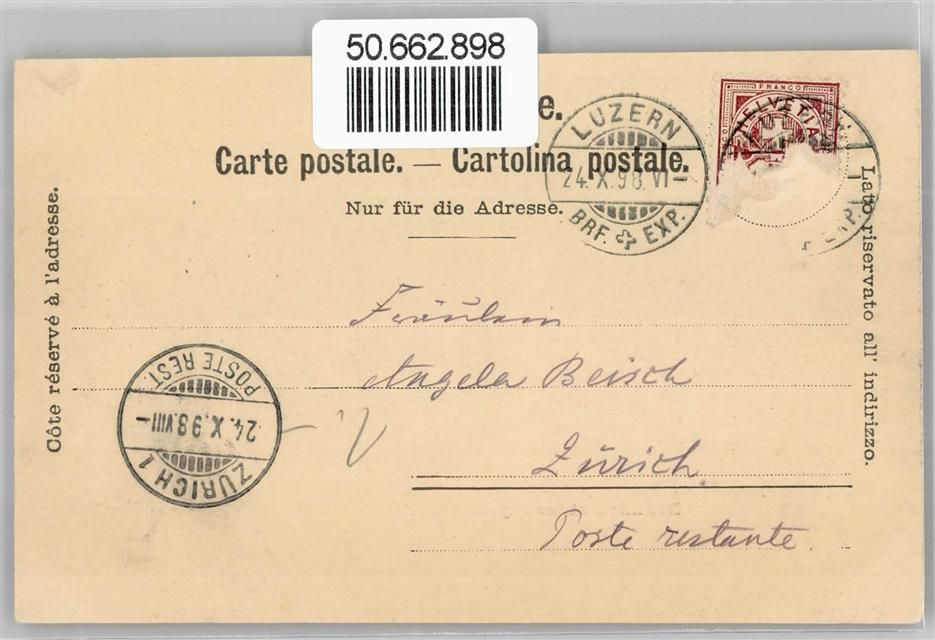 50.662.898
e.
Carte postale. — Cartolina postale.
Nur für die Adresse.
FRANCO
HELVETIA
LUZERN
24.X.98.VI—
BRF. EXP.
EXP.
Côte réservé à l'adresse.
Lato riservato all' indirizzo.
Fräulein
Angela Beisch
Zürich
Poste restante.
POSTE REST.
24.X.98.VIII—
ZÜRICH 1